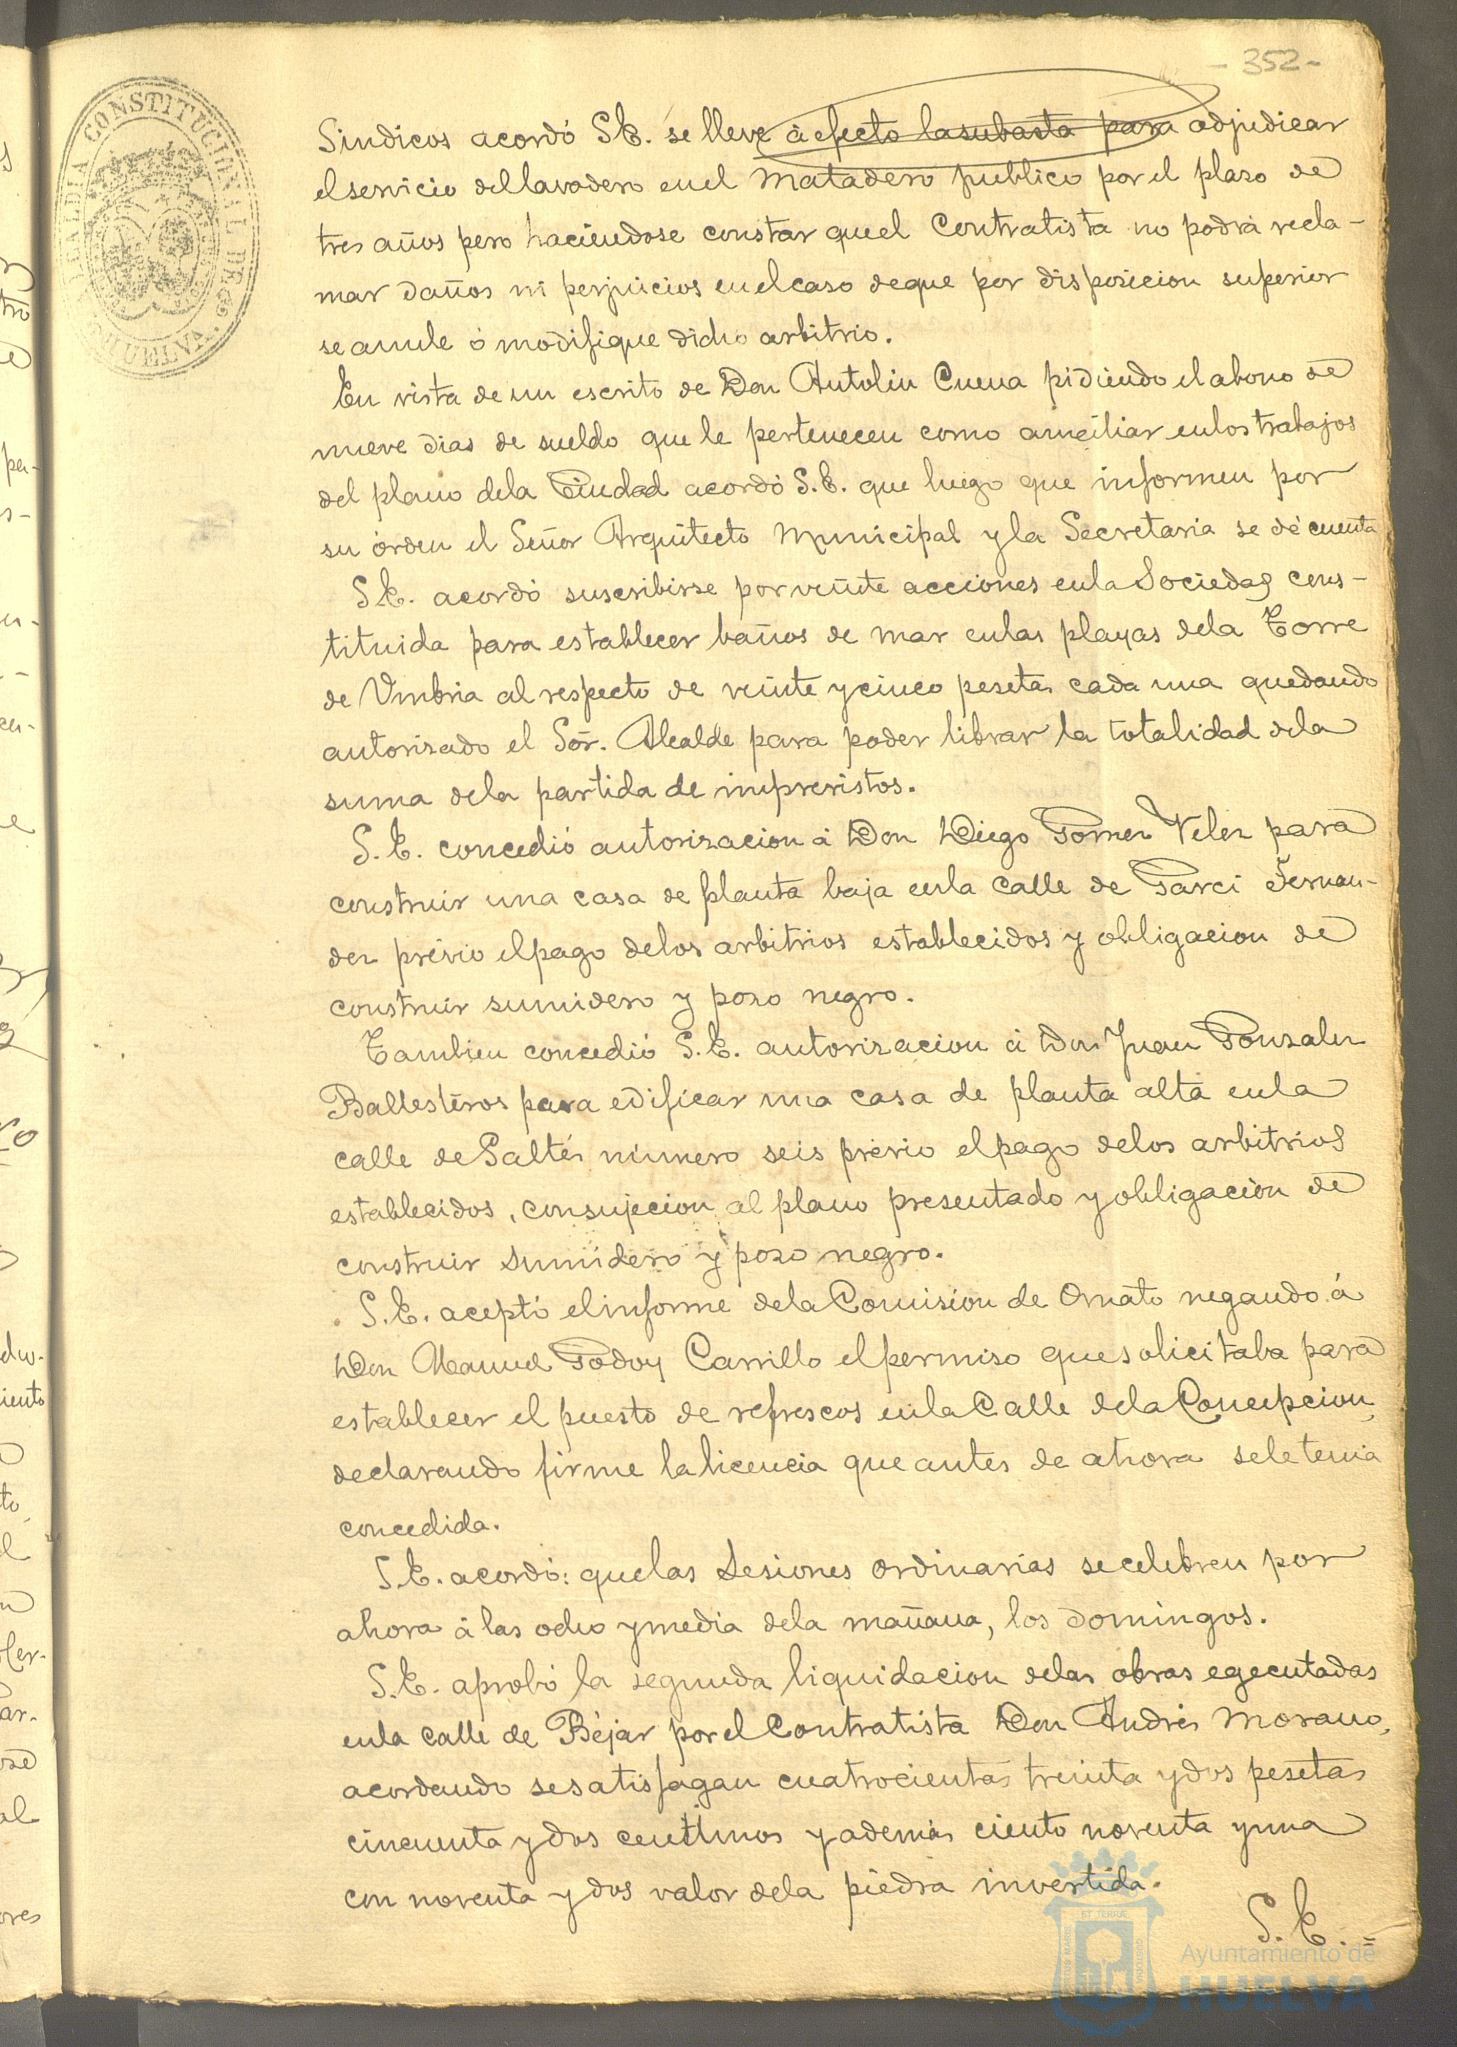 - 352 -
ALCALDIA CONSTITUCIONAL DE HUELVA
Sindicos acordó S.E. se lleve á efecto la subasta para adjudicar
el servicio del lavadero en el Matadero publico por el plazo de
tres años pero haciendose constar que el Contratista no podrá recla-
mar daños ni perjuicios en el caso de que por disposicion superior
se anule ó modifique dicho arbitrio.
En vista de un escrito de Don Antolin Cuena pidiendo el abono de
nueve dias de sueldo que le pertenecen como auxiliar en los trabajos
del plano de la Ciudad acordó S.E. que luego que informen por
su órden el Señor Arquitecto Municipal y la Secretaria se dé cuenta
S.E. acordó suscribirse por veinte acciones en la Sociedad cons-
tituida para establecer baños de mar en las playas de la Torre
de Umbria al respecto de veinte y cinco pesetas cada una quedando
autorizado el Sor. Alcalde para poder librar la totalidad de la
suma de la partida de imprevistos.
S.E. concedió autorizacion á Don Diego Gomez Velez para
construir una casa de planta baja en la calle de Garci Fernan-
dez prévio el pago de los arbitrios establecidos y obligacion de
construir sumidero y pozo negro.
Tambien concedió S.E. autorizacion á Don Juan Gonzalez
Ballesteros para edificar una casa de planta alta en la
calle de Saltés número seis prévio el pago de los arbitrios
establecidos, con sujecion al plano presentado y obligacion de
construir sumidero y pozo negro.
S.E. aceptó el informe de la Comision de Ornato negando á
Don Manuel Godoy Carrillo el permiso que solicitaba para
establecer el puesto de refrescos en la Calle de la Concepcion,
declarando firme la licencia que antes de ahora se le tenia
concedida.
S.E. acordó: que las Sesiones ordinarias se celebren por
ahora á las ocho y media de la mañana, los Domingos.
S.E. aprobó la segunda liquidacion de las obras egecutadas
en la calle de Béjar por el Contratista Don Andrés Morano,
acordando se satisfagan cuatrocientas treinta y dos pesetas
cincuenta y dos centimos y además ciento noventa y una
con noventa y dos valor de la piedra invertida.
S. E. =
Ayuntamiento de
HUELVA